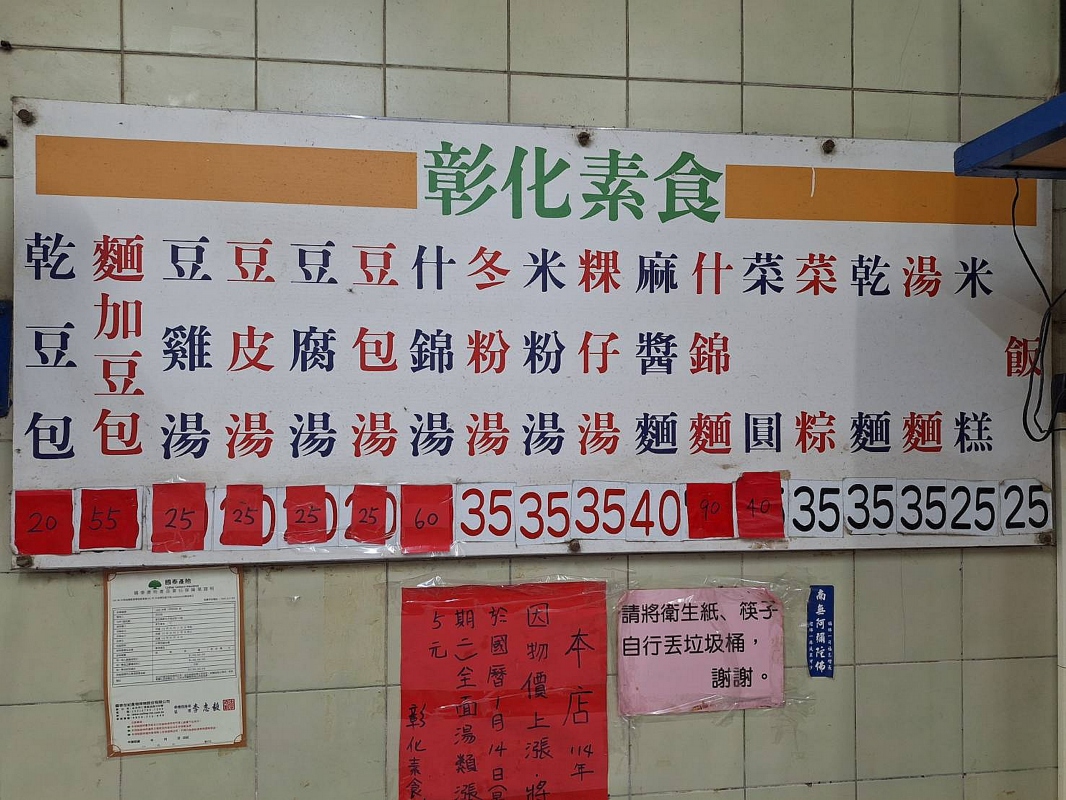 彰化素食
乾豆包
麵加豆包
豆雞湯
豆皮湯
豆腐湯
豆包湯
什錦湯
冬粉湯
米粉湯
粿仔湯
麻醬麵
什錦麵
菜圓
菜粽
乾麵
湯麵
米糕
飯
20 55 25 25 25 25 60 35 35 35 40 90 40 35 35 35 25 25
國泰產險
李志毅
本店114年
因物價上漲.將
於國曆1月14日(
期二)全面湯類漲
5元
彰化素食
請將衛生紙、筷子
自行丟垃圾桶，
謝謝。
南無阿彌陀佛